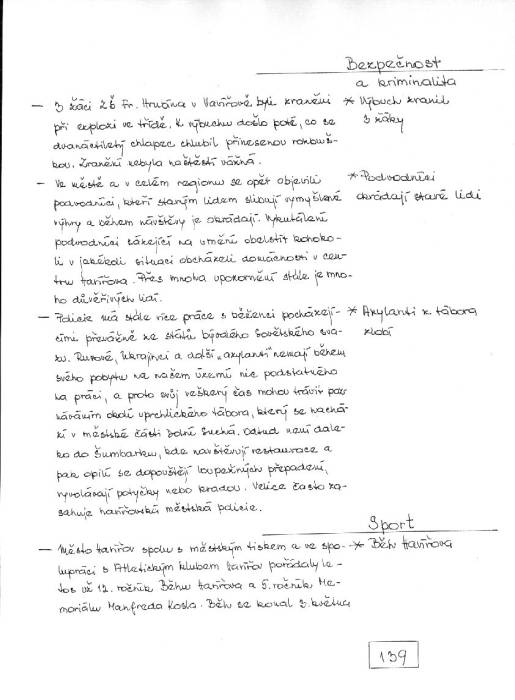 Bezpečnost
a kriminalita
– 3 žáci ZŠ Fr. Hrubína v Havířově byli zraněni
* Výbuch zranil
při explozi ve třídě. K výbuchu došlo poté, co se
3 žáky
dvanáctiletý chlapec chlubil přinesenou rozbuš-
kou. Zranění nebyla naštěstí vážná.
– Ve městě a v celém regionu se opět objevili
* Podvodníci
podvodníci, kteří starým lidem slibují vymyšlené
okrádají staré lidi
výhry a během návštěvy je okrádají. Vykutálení
podvodníci sázející na umění obelstít kohoko-
li v jakékoli situaci obcházeli domácnosti v cen-
tru Havířova. Přes mnoha upozornění stále je mno-
ho důvěřivých lidí.
– Policie má stále více práce s běženci pocházejí-
* Azylanti z tábora
cími převážně ze států bývalého Sovětského sva-
zlobí
zu. Rusové, Ukrajinci a další "azylanti" nemají během
svého pobytu na našem území nic podstatného
na práci, a proto svůj veškerý čas mohou trávit poz-
náváním okolí uprchlického tábora, který se nachá-
zí v městské části Dolní Suchá. Odtud není dale-
ko do Šumbarku, kde navštěvují restaurace a
pak opilí se dopouštějí loupežných přepadení,
vyvolávají potyčky nebo kradou. Velice často za-
sahuje havířovská městská policie.
Sport
– Město Havířov spolu s městským tiskem a ve spo-
* Běh Havířova
lupráci s Atletickým klubem Havířov pořádaly le-
tos už 12. ročník Běhu Havířova a 5. ročník Me-
moriálu Manfreda Kosla. Běh se konal 3. května
139